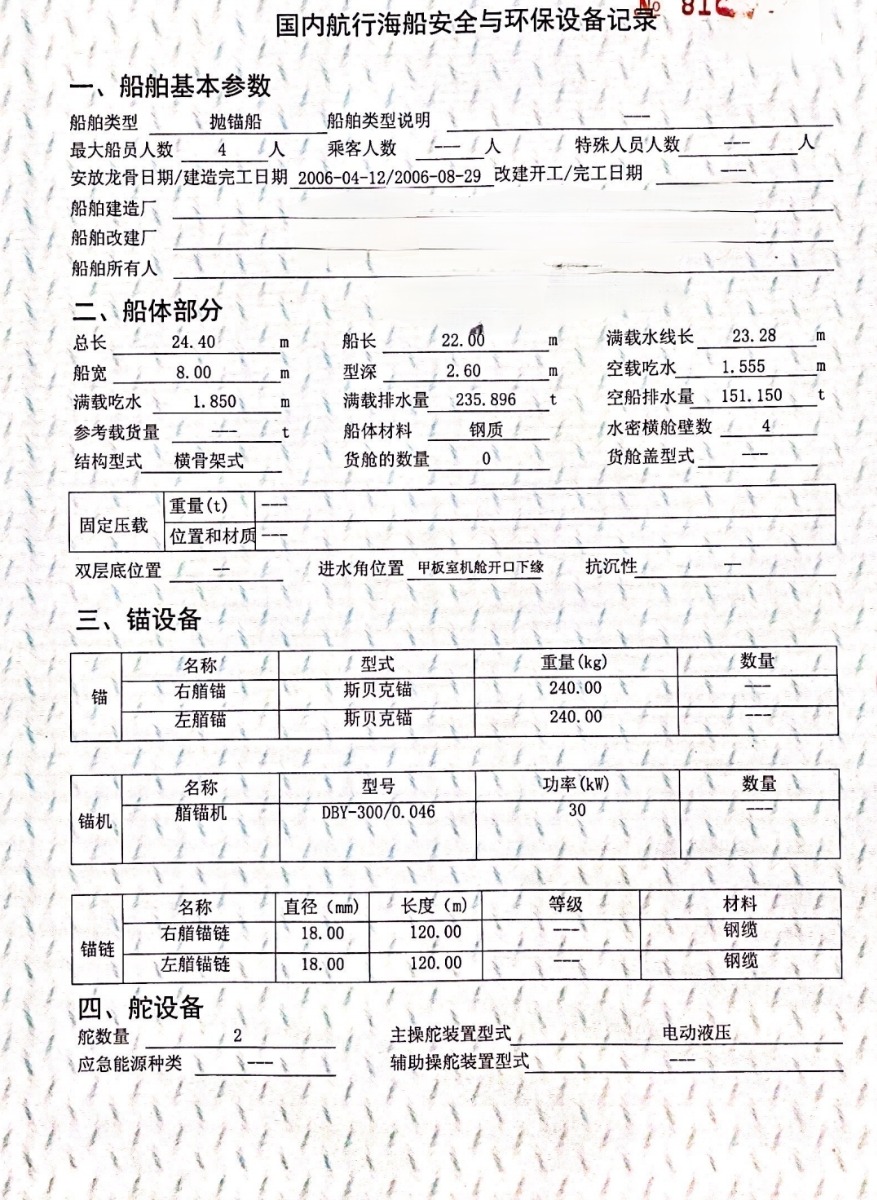 № 81
国内航行海船安全与环保设备记录
一、船舶基本参数
船舶类型 抛锚船 船舶类型说明 ---
最大船员人数 4 人 乘客人数 --- 人 特殊人员人数 --- 人
安放龙骨日期/建造完工日期 2006-04-12/2006-08-29 改建开工/完工日期 ---
船舶建造厂
船舶改建厂
船舶所有人
二、船体部分
总长 24.40 m 船长 22.00 m 满载水线长 23.28 m
船宽 8.00 m 型深 2.60 m 空载吃水 1.555 m
满载吃水 1.850 m 满载排水量 235.896 t 空船排水量 151.150 t
参考载货量 --- t 船体材料 钢质 水密横舱壁数 4
结构型式 横骨架式 货舱的数量 0 货舱盖型式 ---
固定压载 重量(t) ---
位置和材质 ---
双层底位置 -- 进水角位置 甲板室机舱开口下缘 抗沉性 --
三、锚设备
锚 名称 型式 重量(kg) 数量
右艏锚 斯贝克锚 240.00 ---
左艏锚 斯贝克锚 240.00 ---
锚机 名称 型号 功率(kW) 数量
艏锚机 DBY-300/0.046 30 ---
锚链 名称 直径(mm) 长度(m) 等级 材料
右艏锚链 18.00 120.00 --- 钢缆
左艏锚链 18.00 120.00 --- 钢缆
四、舵设备
舵数量 2 主操舵装置型式 电动液压
应急能源种类 --- 辅助操舵装置型式 ---